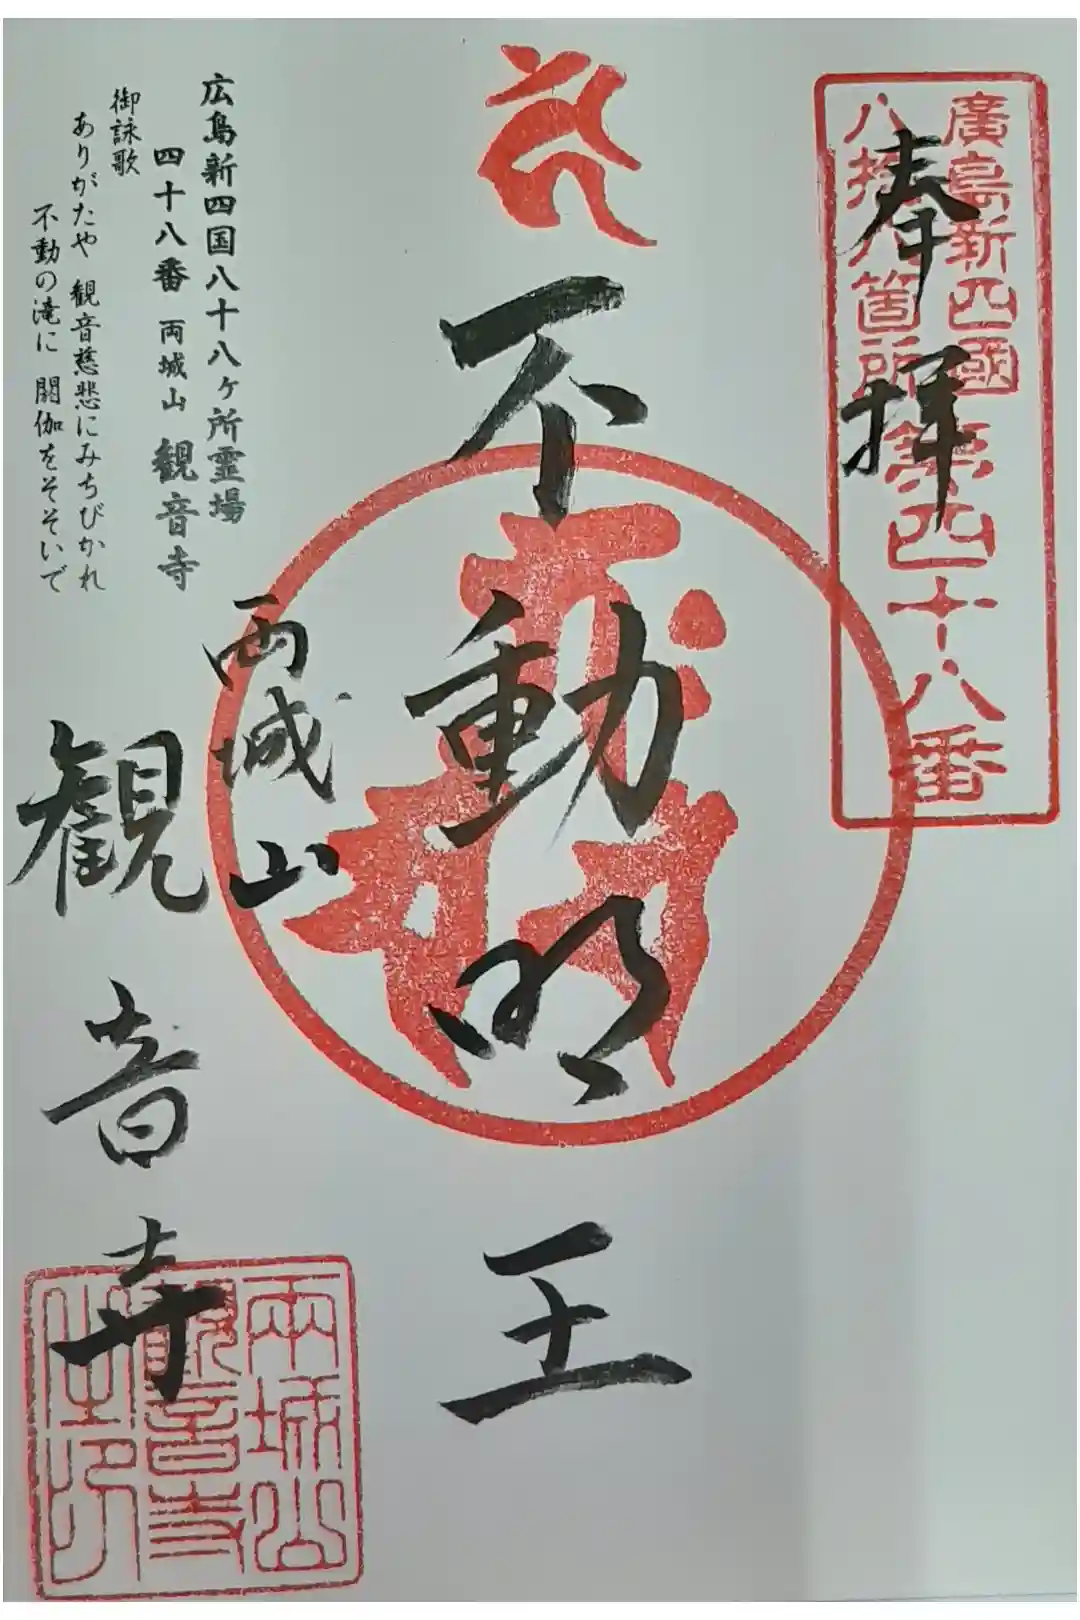 廣島新四國
八拾八箇所
第四十八番
奉拝
不動明王
両城山
観音寺
広島新四国八十八ヶ所霊場
四十八番 両城山 観音寺
御詠歌
ありがたや 観音慈悲にみちびかれ
不動の滝に 閼伽をそそいで
兩城山
觀音寺
之印